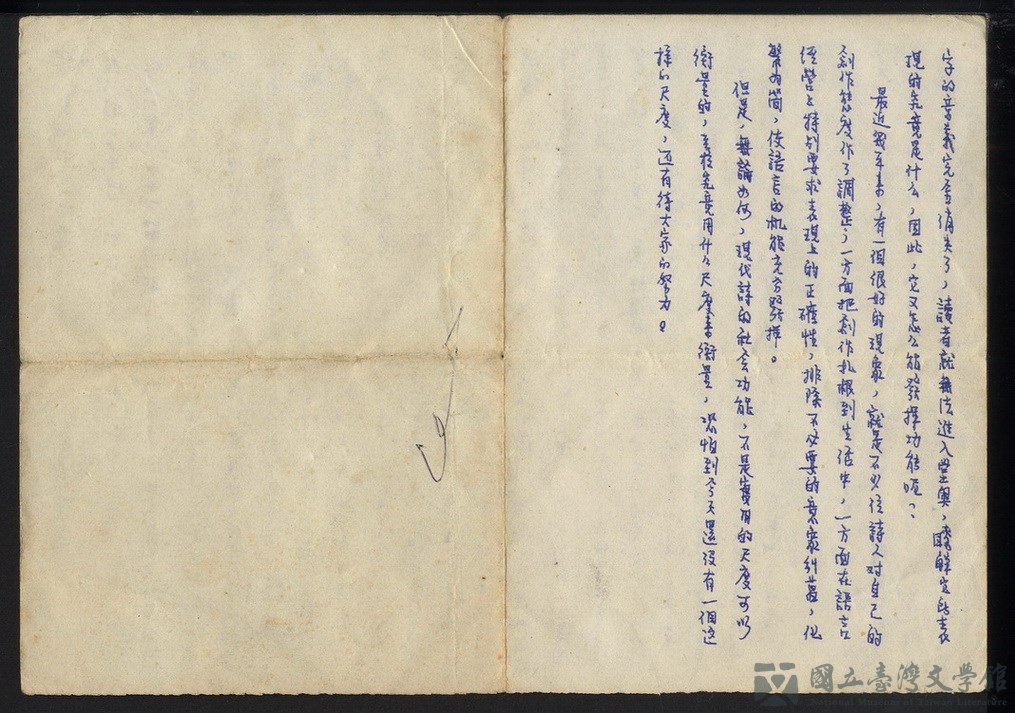 字的意義完全消失了，讀者就無法進入堂奧，瞭解它所表
現的究竟是什么，因此，它又怎么能發揮功能呢？
最近幾年來，有一個很好的現象，就是不少位詩人對自己的
創作態度作了調整，一方面把創作扎根到生活中，一方面在語言
經營上特別要求表現上的正確性，排除不必要的意象糾葛，化
繁為簡，使語言的机能充分發揮。
但是，無論如何，現代詩的社会功能，不是實用的尺度可以
衡量的，至於究竟用什么尺度來衡量，恐怕到今天還沒有一個這
樣的尺度，還有待大家的努力。
國立臺灣文學館
National Museum of Taiwan Literature